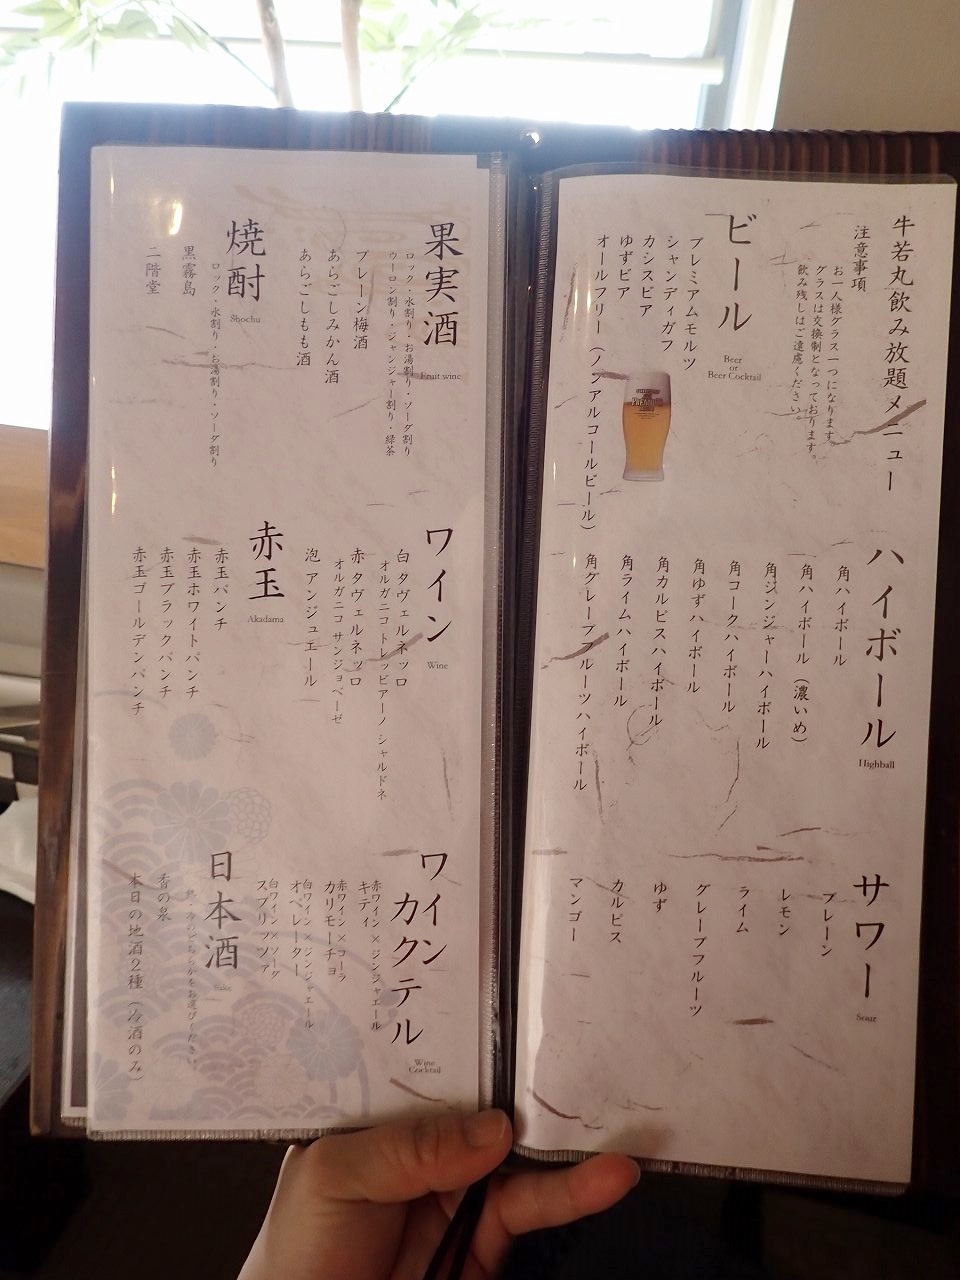 牛若丸飲み放題メニュー
注意事項
お一人様グラス一つになります。
グラスは交換制となっております。
飲み残しはご遠慮ください。
ビール
Beer
or
Beer Cocktail
プレミアムモルツ
シャンディガフ
カシスビア
ゆずビア
オールフリー（ノンアルコールビール）
ハイボール
Highball
角ハイボール
角ハイボール（濃いめ）
角ジンジャーハイボール
角コークハイボール
角ゆずハイボール
角カルピスハイボール
角ライムハイボール
角グレープフルーツハイボール
サワー
Sour
プレーン
レモン
ライム
グレープフルーツ
ゆず
カルピス
マンゴー
果実酒
Fruit wine
ロック・水割り・お湯割り・ソーダ割り
ウーロン割り・ジンジャー割り・緑茶
プレーン梅酒
あらごしみかん酒
あらごしもも酒
焼酎
Shochu
ロック・水割り・お湯割り・ソーダ割り
黒霧島
二階堂
ワイン
Wine
白 タヴェルネッロ
オルガニコ トレッビアーノ シャルドネ
赤 タヴェルネッロ
オルガニコ サンジョベーゼ
泡 アンジュエール
赤玉
Akadama
赤玉パンチ
赤玉ホワイトパンチ
赤玉ブラックパンチ
赤玉ゴールデンパンチ
ワイン
カクテル
Wine
Cocktail
赤ワイン×ジンジャエール
キティ
赤ワイン×コーラ
カリモーチョ
白ワイン×ジンジャエール
オペレーター
白ワイン×ソーダ
スプリッツァ
日本酒
Sake
熱・冷のどちらかをお選びください。
香の泉
本日の地酒2種（冷酒のみ）